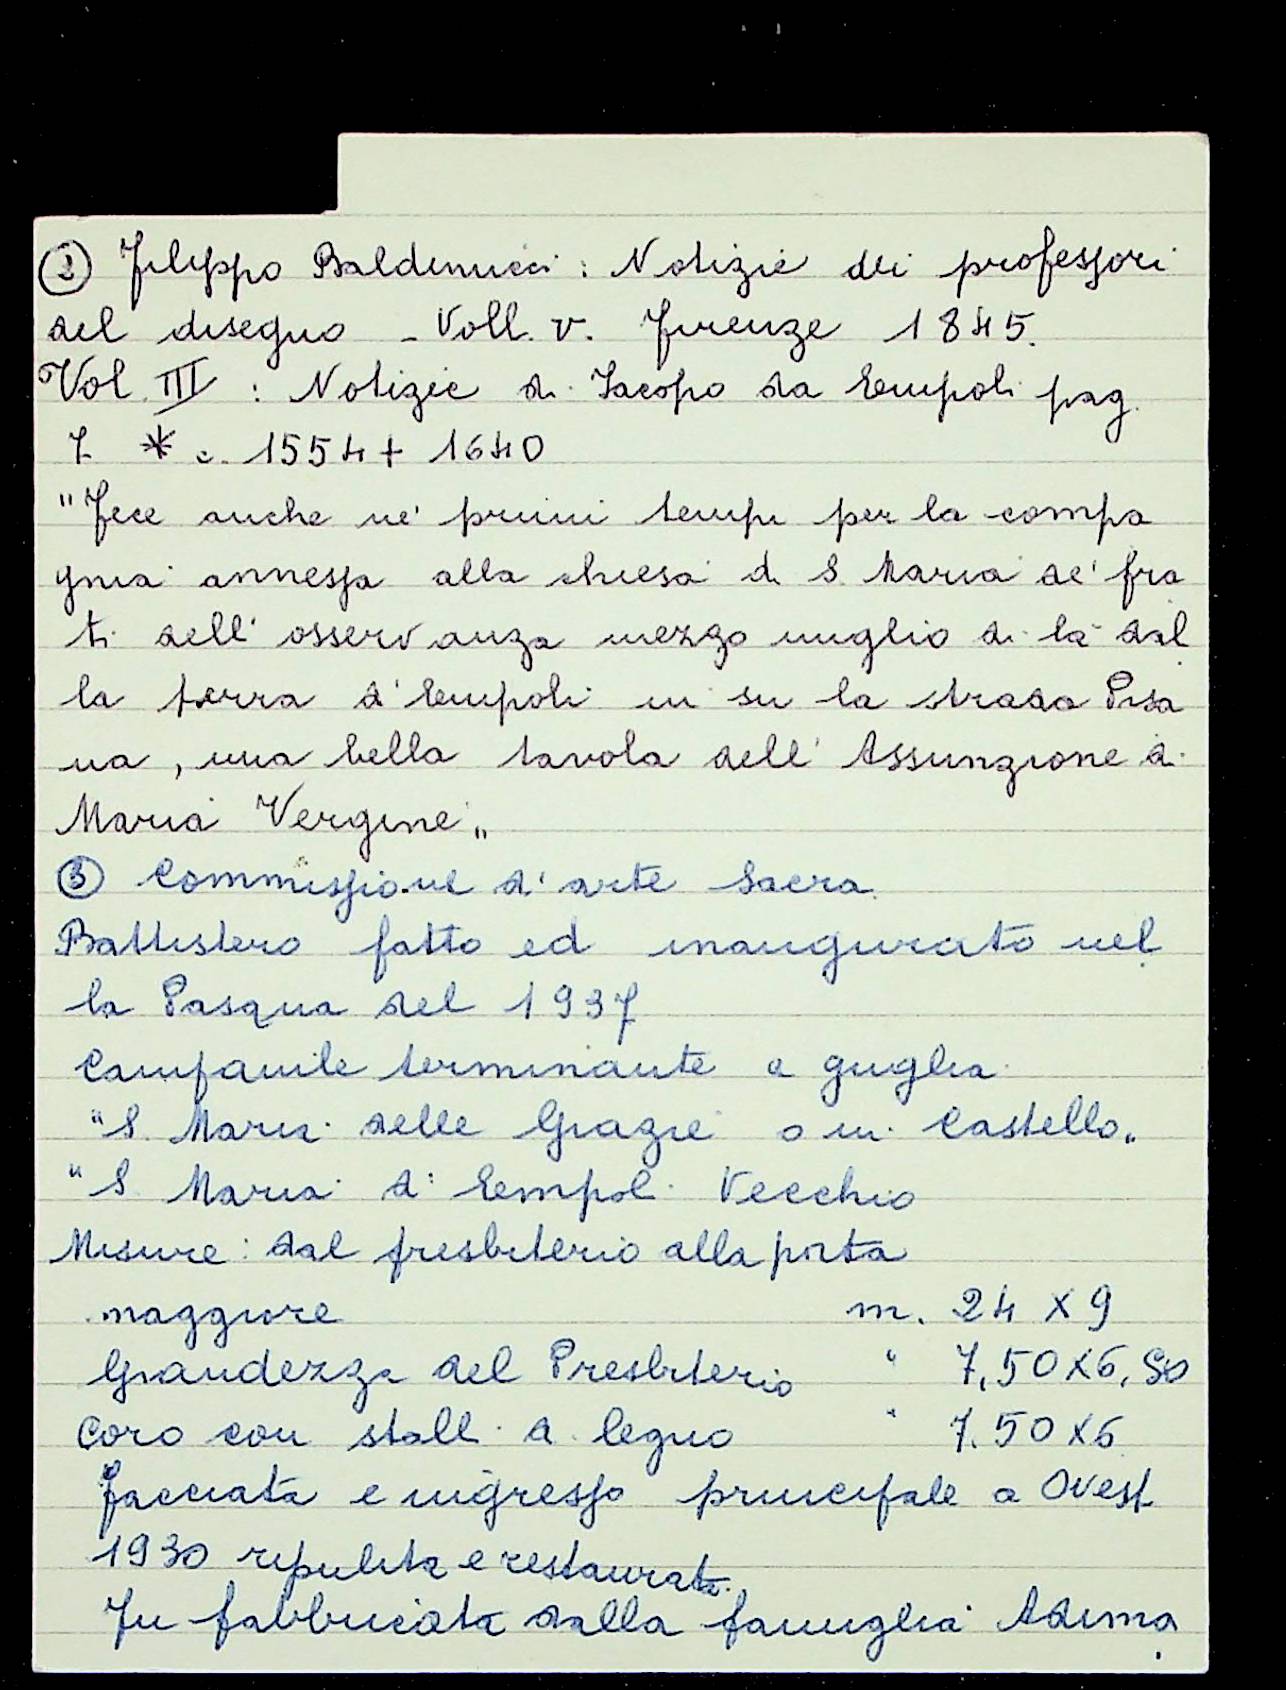 ② Filippo Baldinucci: Notizie dei professori
del disegno - Voll. V. Firenze 1845.
Vol. III : Notizie di Jacopo da Empoli pag.
7 * c. 1554 + 1640
"Fece anche ne' primi tempi per la compa
gnia annessa alla chiesa di S. Maria de' fra
ti dell'osservanza mezzo miglio di là dal
la terra d'Empoli in su la strada Pisa
na, una bella tavola dell'Assunzione di
Maria Vergine„
③ Commissione d'arte Sacra
Battistero fatto ed inaugurato nel
la Pasqua del 1937
Campanile terminante a guglia
"S. Maria delle Grazie o in Castello„
"S. Maria di Empoli Vecchio
Misure: dal presbiterio alla porta
maggiore m. 24 x 9
Grandezza del Presbiterio " 7,50x6,50
Coro con stalli di legno " 7.50x6
Facciata e ingresso principale a Ovest
1930 ripulita e restaurata
Fu fabbricata dalla famiglia Adima